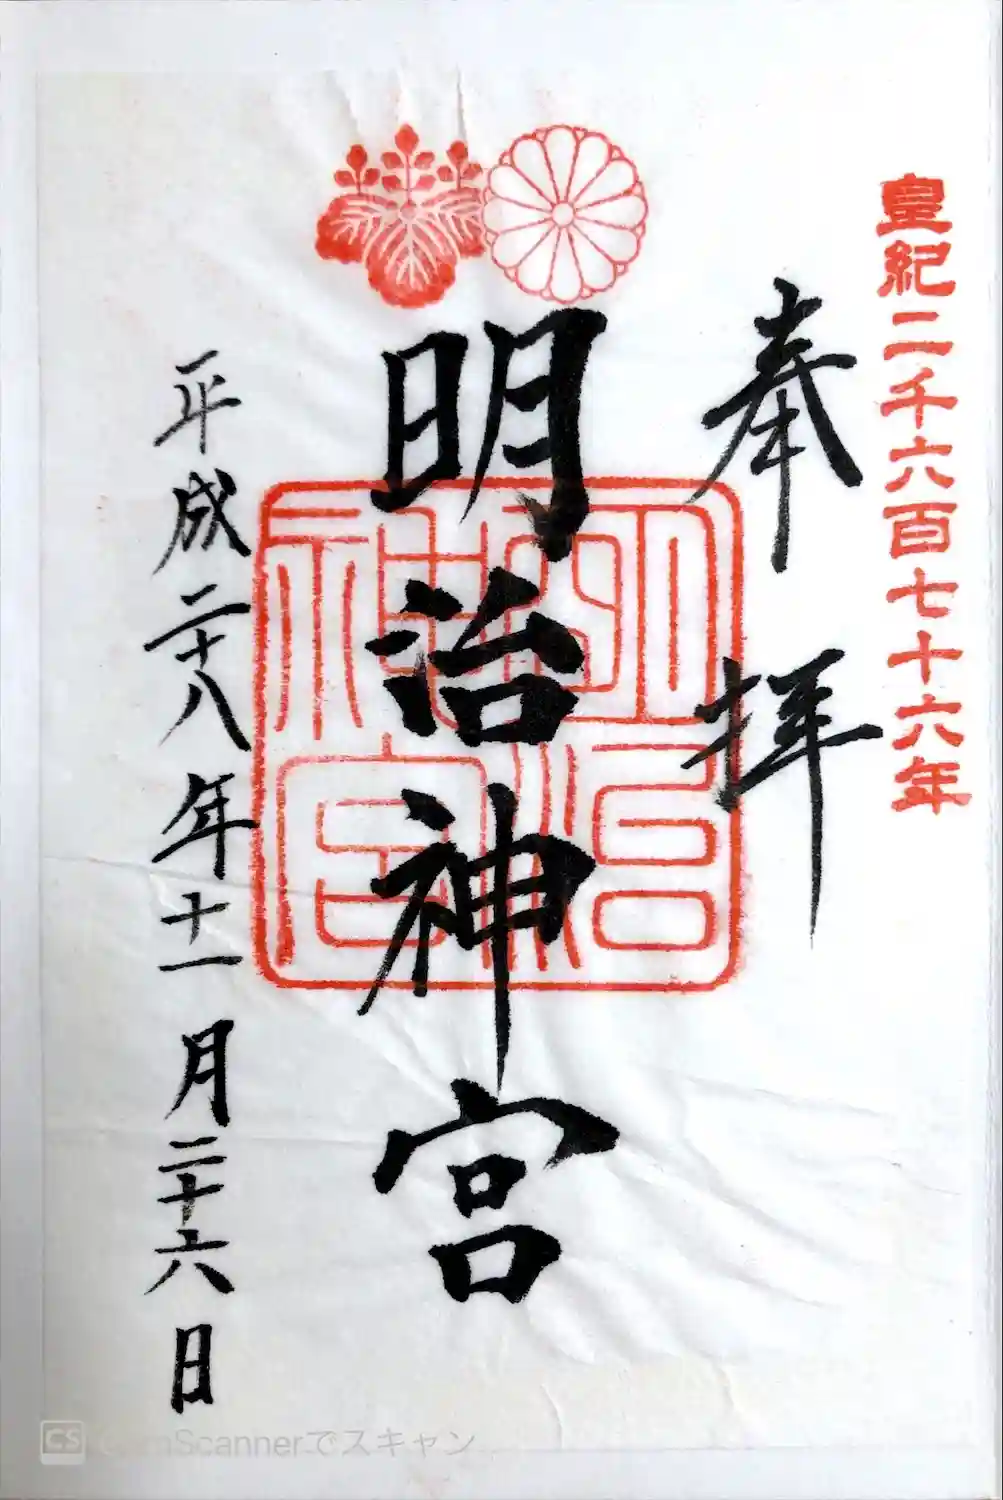 皇紀二千六百七十六年
奉拝
明治神宮
明治神宮
平成二十八年十一月二十六日
CS CamScannerでスキャン